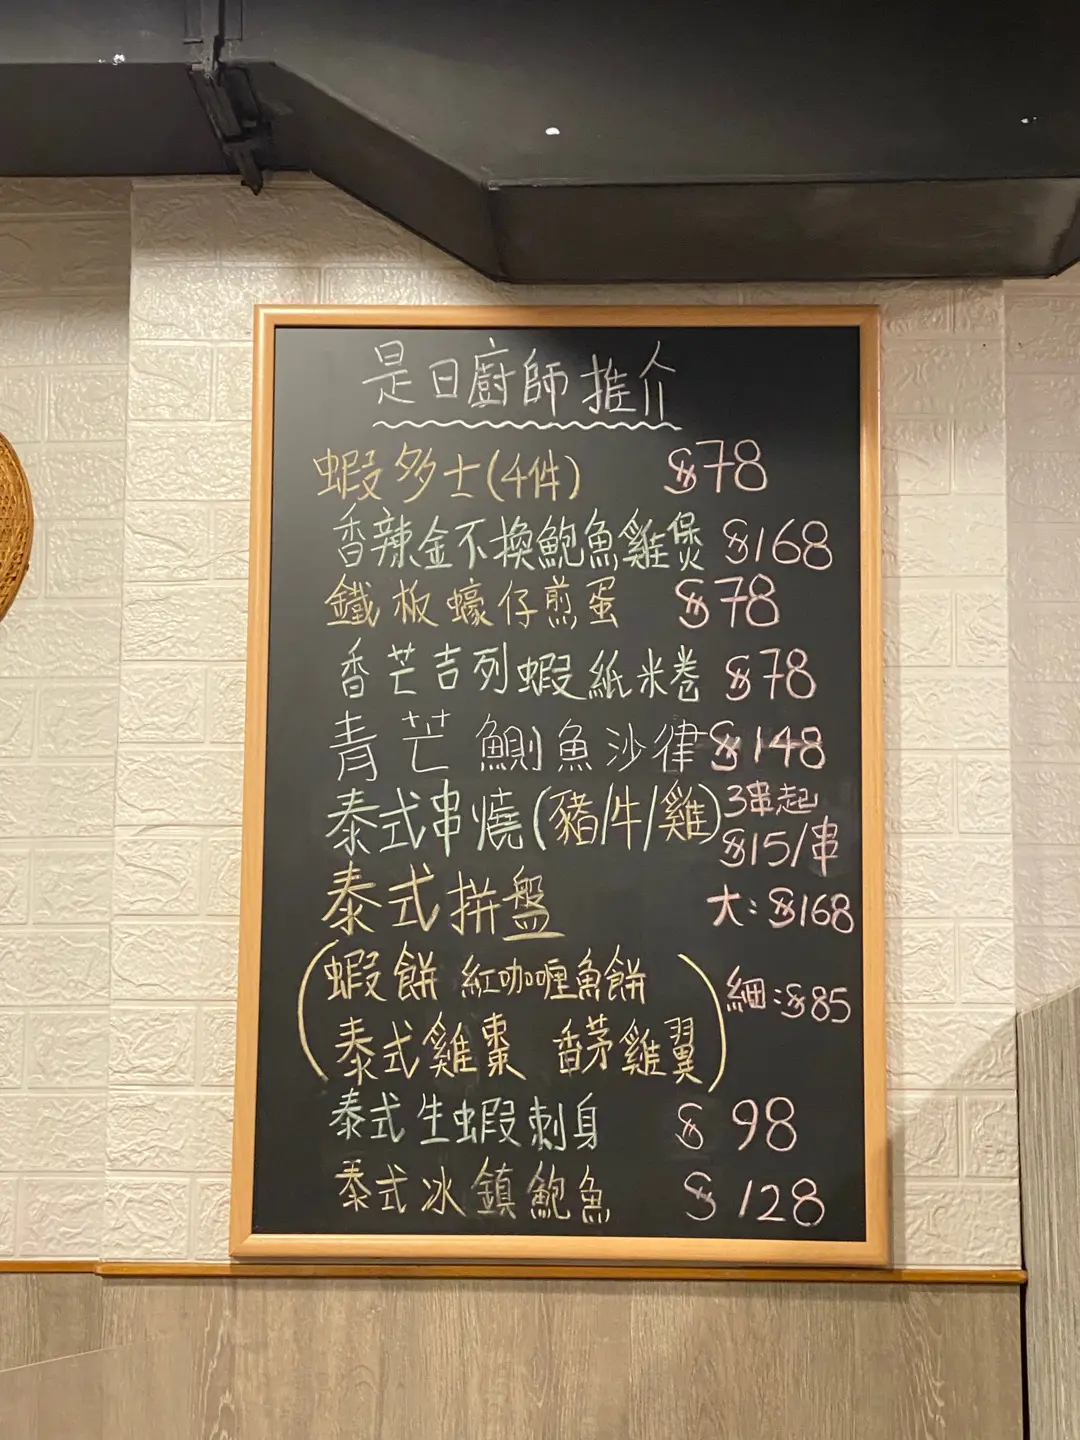 是日廚師推介
蝦多士(4件) $78
香辣金不換鮑魚雞煲 $168
鐵板蠔仔煎蛋 $78
香芒吉列蝦紙米卷 $78
青芒鰂魚沙律 $148
泰式串燒(豬/牛/雞) 3串起 $15/串
泰式拼盤 大:$168
(蝦餅 紅咖喱魚餅 細:$85
泰式雞棗 香茅雞翼)
泰式生蝦刺身 $98
泰式冰鎮鮑魚 $128